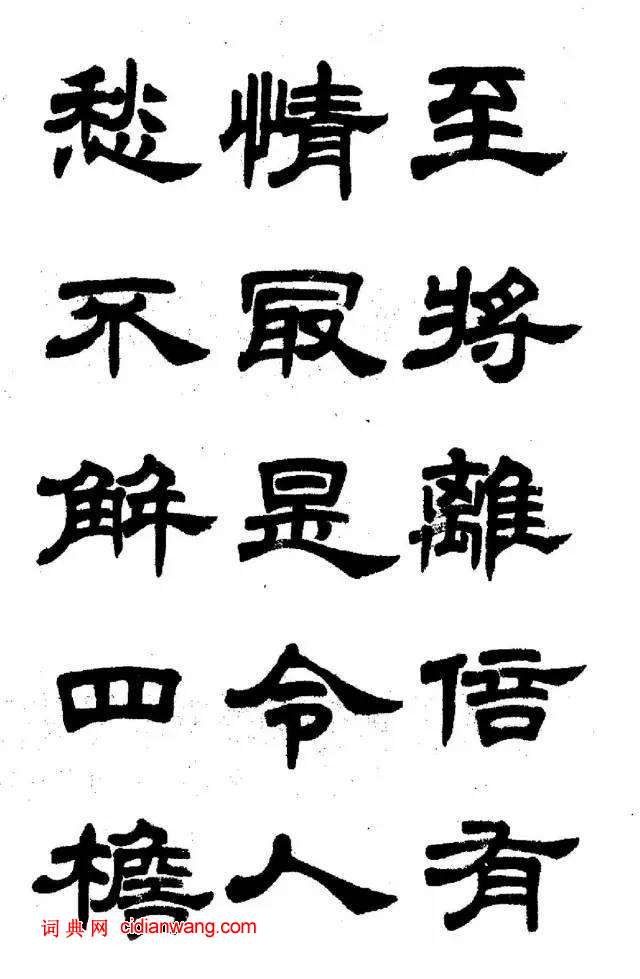 至將離倍有
情最是令人
愁不解四檐
词典网 cidianwang.com